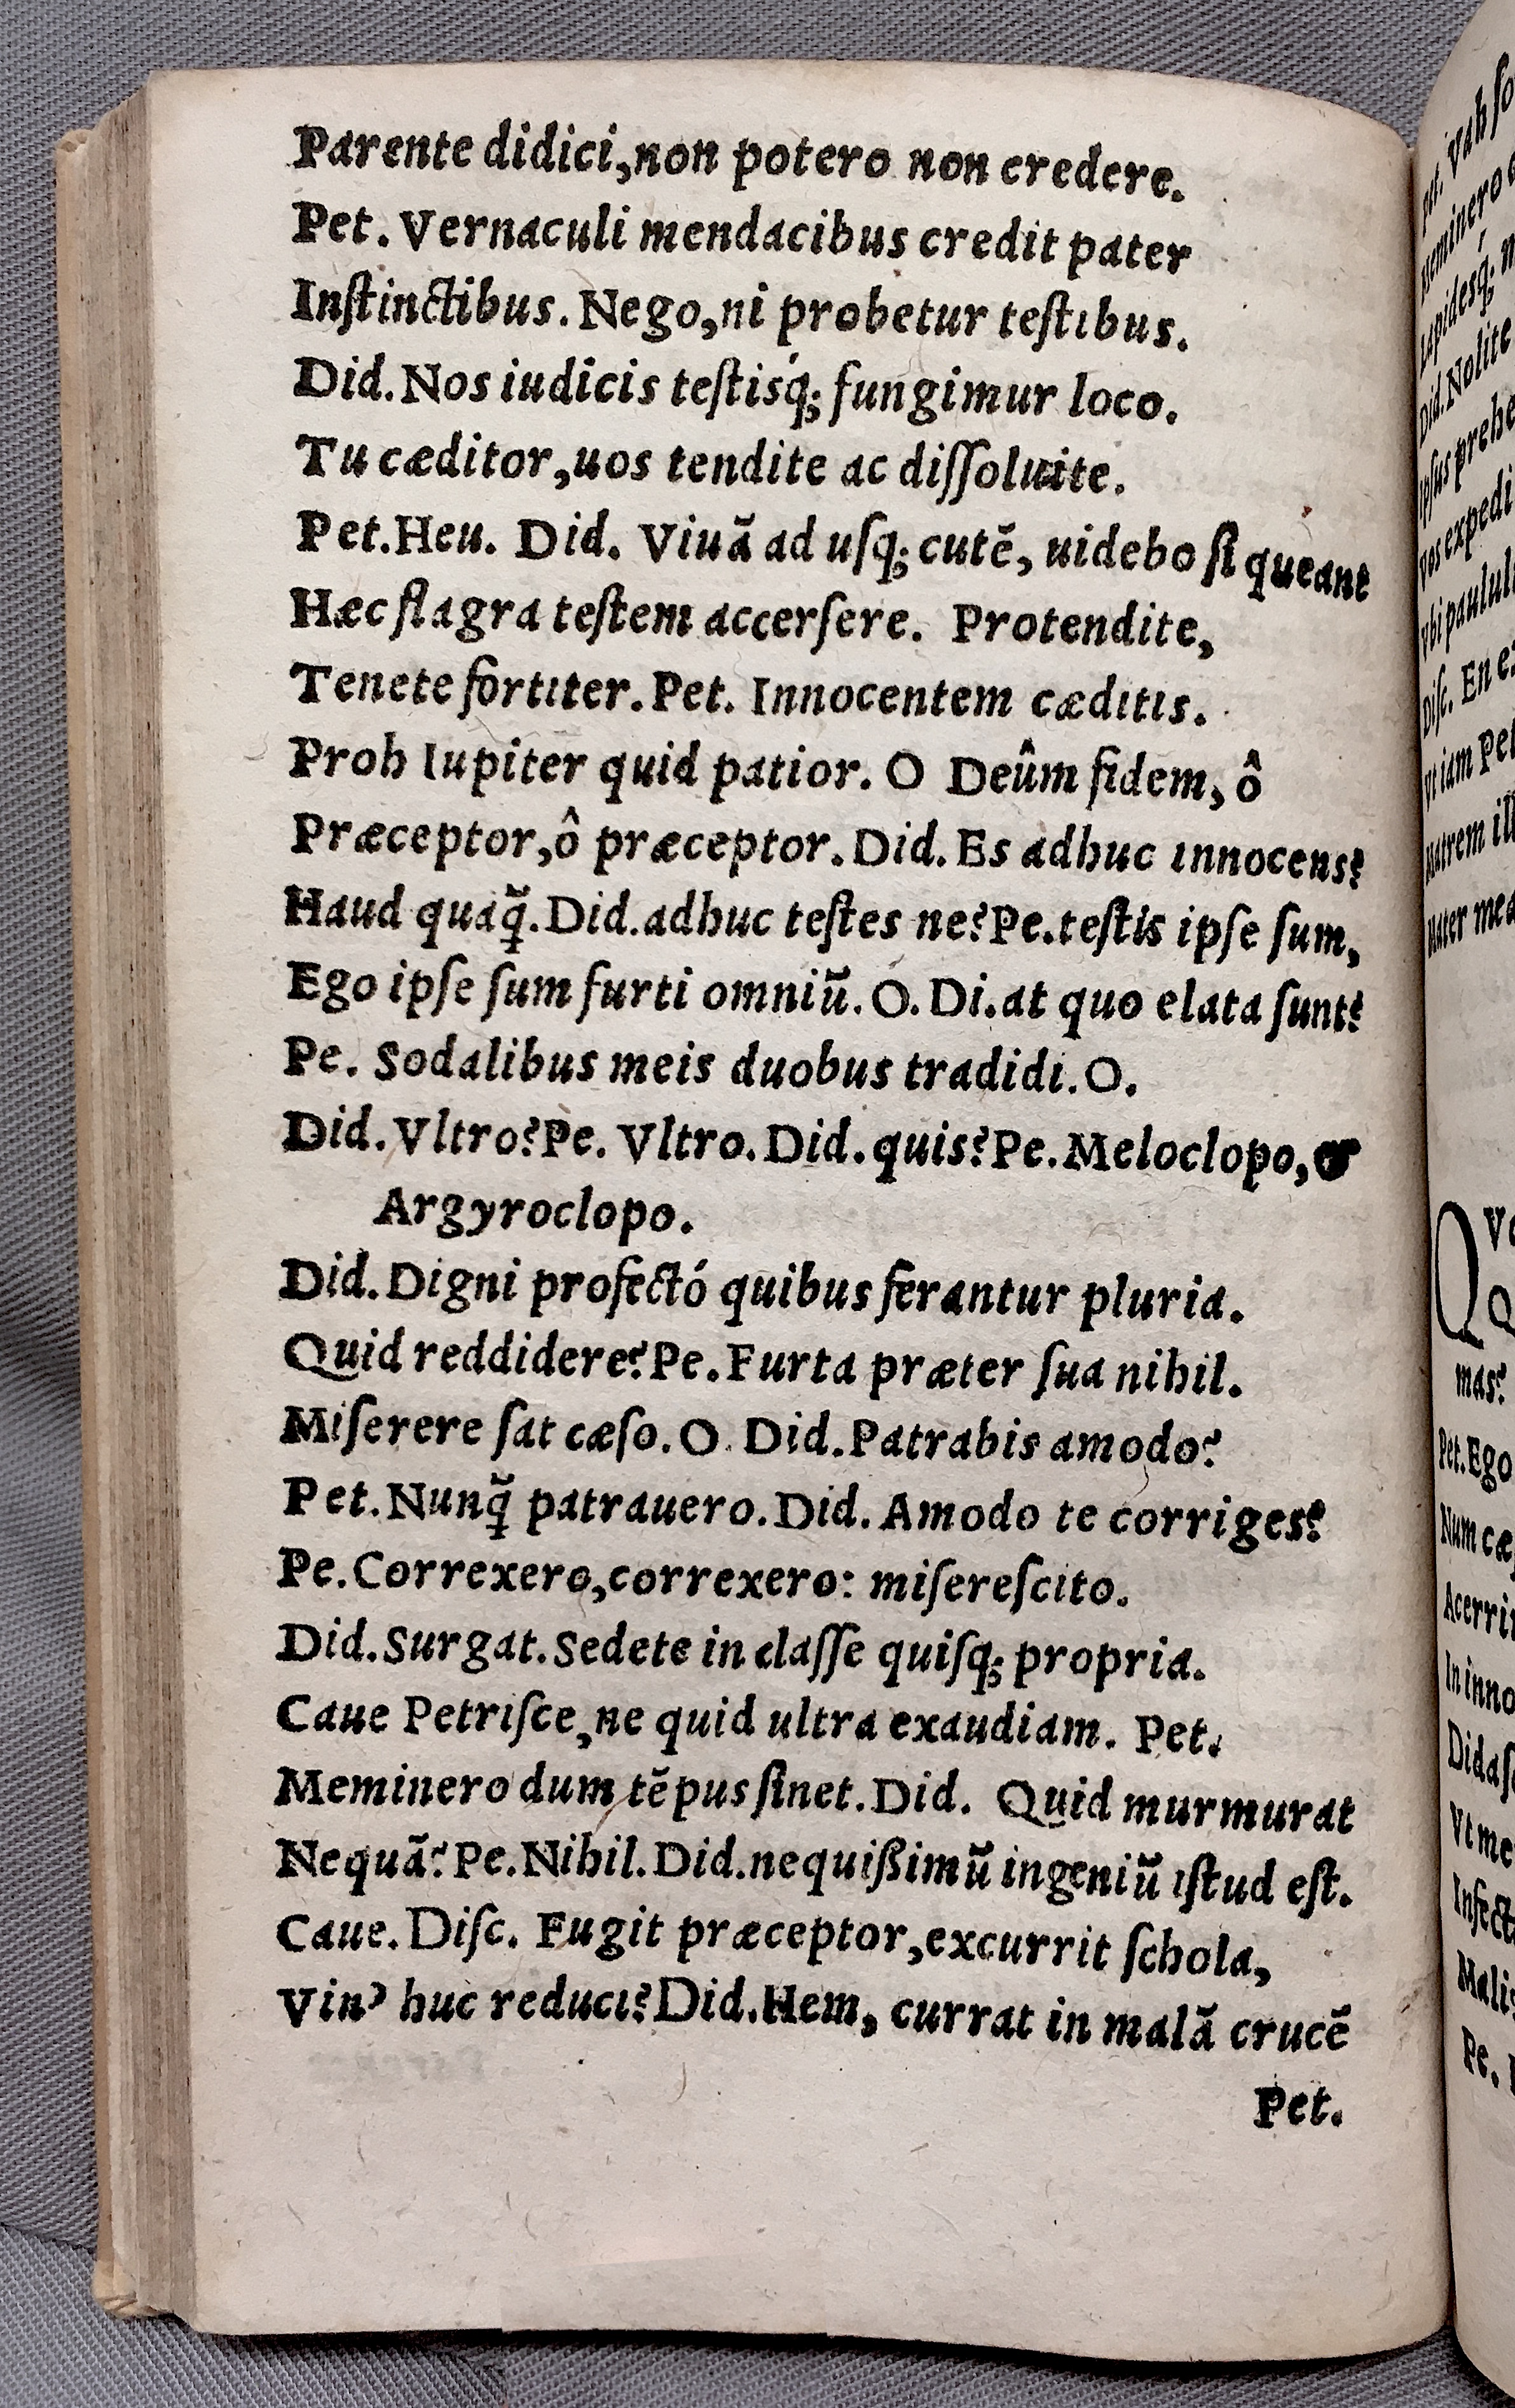 Parente didici,non potero non credere.
Pet. Vernaculi mendacibus credit pater
Inſtinctibus. Nego,ni probetur teſtibus.
Did. Nos iudicis teſtisq́; fungimur loco.
Tu cæditor,uos tendite ac diſſoluite.
Pet. Heu. Did. Viuã ad uſq; cutẽ, uidebo ſi queant
Hæc flagra teſtem accerſere. Protendite,
Tenete fortiter. Pet. Innocentem cæditis.
Proh Iupiter quid patior. O Deûm fidem, ô
Præceptor,ô præceptor. Did. Es adhuc innocens?
Haud quaq̃. Did. adhuc teſtes ne? Pe. teſtis ipſe ſum,
Ego ipſe ſum furti omniũ. O. Di. at quo elata ſunt?
Pe. Sodalibus meis duobus tradidi. O.
Did. Vltro? Pe. Vltro. Did. quis? Pe. Meloclopo, &
Argyroclopo.
Did. Digni profectó quibus ferantur pluria.
Quid reddidere? Pe. Furta præter ſua nihil.
Miſerere ſat cæſo. O. Did. Patrabis amodo?
Pet. Nunq̃ patrauero. Did. Amodo te corriges?
Pe. Correxero,correxero: miſereſcito.
Did. Surgat. Sedete in claſſe quiſq; propria.
Caue Petriſce,ne quid ultra exaudiam. Pet.
Meminero dum tẽpus ſinet. Did. Quid murmurat
Nequã? Pe. Nihil. Did. nequißimũ ingeniũ iſtud eſt.
Caue. Diſc. Fugit præceptor,excurrit ſchola,
Vin' huc reduci? Did. Hem, currat in malã crucẽ
Pet.